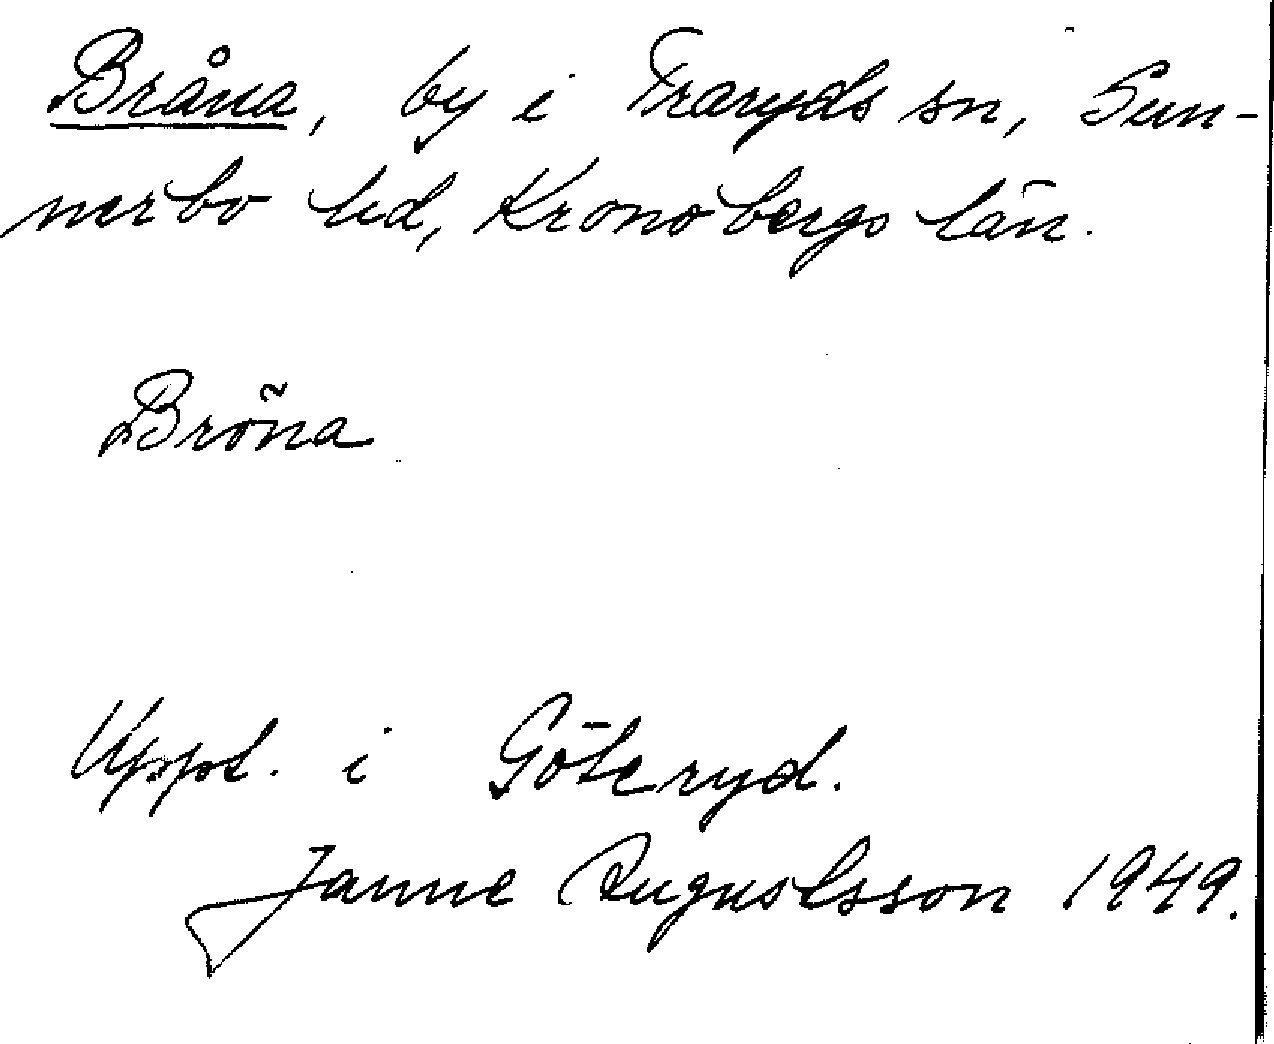 Bråna, by i Traryds sn, Sun-
nerbo hd, Kronobergs län.
Brõna
Uppt. i Göteryd.
Janne Augustsson 1949.